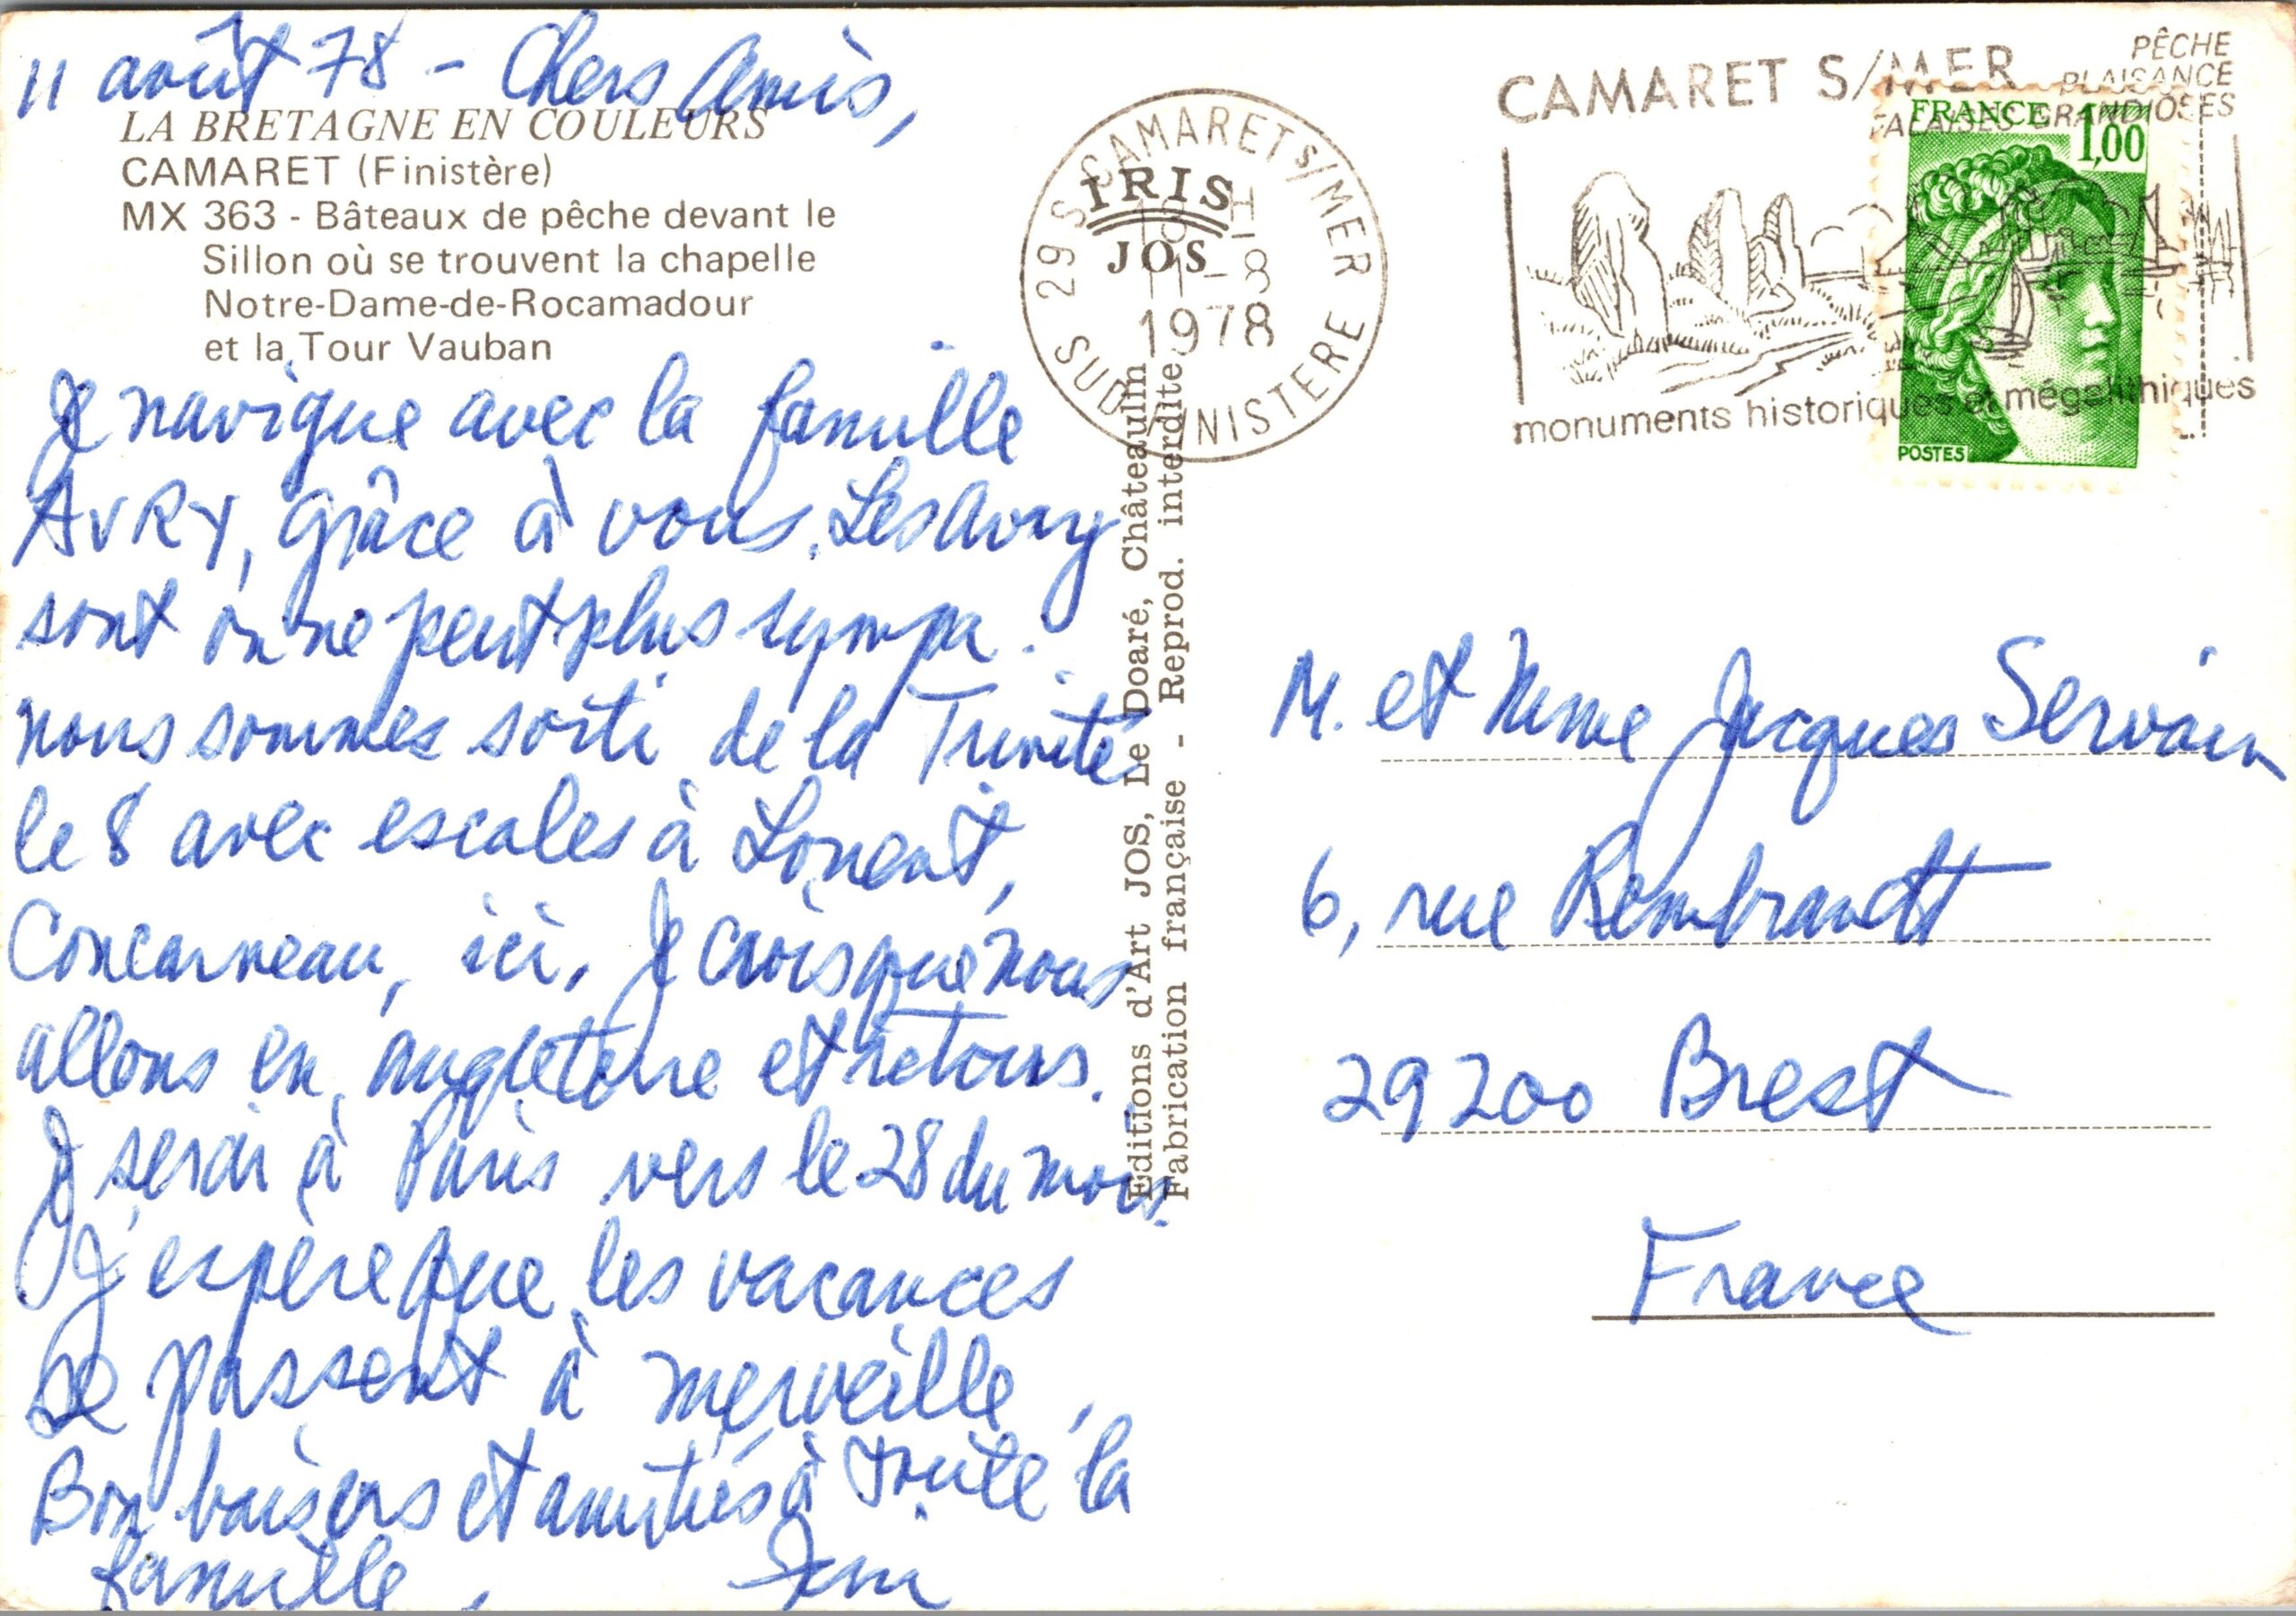 11 août 78 - Chers Amis,
LA BRETAGNE EN COULEURS
CAMARET (Finistère)
MX 363 - Bâteaux de pêche devant le
Sillon où se trouvent la chapelle
Notre-Dame-de-Rocamadour
et la Tour Vauban
Je navigue avec la famille
AVRY, grâce à vous. Les Avry
sont on ne peut plus sympa.
nous sommes sorti de la Trinité
le 8 avec escales à Lorient,
Concarneau, ici. Je crois que nous
allons en angleterre et retour.
Je serai à Paris vers le 28 du mois.
J'espère que les vacances
se passent à merveille,
Bon baisers et amitiés à toute la
famille,
IRIS
JOS
CAMARET S/MER
29 S
18 H
11-8
1978
SUD FINISTERE
Editions d'Art JOS, Le Doaré, Châteaulin
Fabrication française - Reprod. interdite
CAMARET S/MER
PÊCHE
PLAISANCE
FALAISES GRANDIOSES
monuments historiques et mégalithiques
FRANCE 1,00
POSTES
M. et Mme Jacques Servain
6, rue Rembrandt
29200 Brest
France